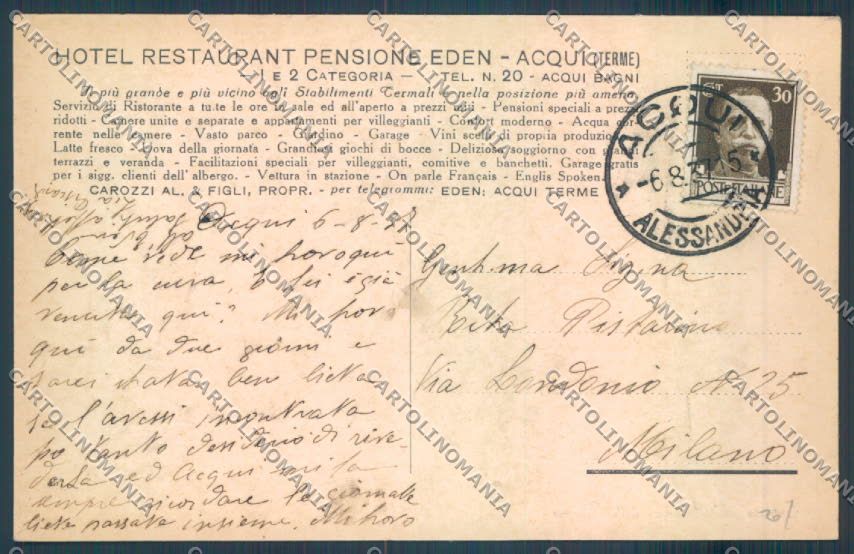 HOTEL RESTAURANT PENSIONE EDEN - ACQUI (TERME)
1 E 2 CATEGORIA — TEL. N. 20 - ACQUI BAGNI
Il più grande e più vicino agli Stabilimenti Termali e nella posizione più amena
Servizio di Ristorante a tutte le ore in sale ed all'aperto a prezzi miti - Pensioni speciali a prezzi
ridotti - Camere unite e separate e appartamenti per villeggianti - Confort moderno - Acqua cor-
rente nelle camere - Vasto parco - Giardino - Garage - Vini scelti di propria produzione
Latte fresco - Uova della giornata - Grandiosi giochi di bocce - Delizioso soggiorno con grandi
terrazzi e veranda - Facilitazioni speciali per villeggianti, comitive e banchetti. Garage gratis
per i sigg. clienti dell'albergo. - Vettura in stazione - On parle Français - Englis Spoken.
CAROZZI AL. & FIGLI, PROPR. - per telegrammi: EDEN: ACQUI TERME
30
POSTE ITALIANE
ACQUI
-6.8.37.15
ALESSANDRIA
Acqui 6-8-37
Come vede mi trovo qui
per la cura, e lei è già
venuta qui? Mi trovo
qui da due giorni e
sarei stata ben lieta
se l'avessi incontrata
ho tanto desiderio di rive-
derla ed Acqui mi fa
sempre ricordare le giornate
liete passate insieme. Mi trovo
Gent.ma Sig.na
Rita Pistarino
Via Londonio N 25
Milano
CARTOLINOMANIA